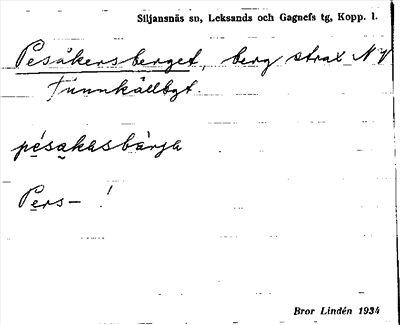 Siljansnäs sn, Leksands och Gagnefs tg, Kopp. l.
Pesåkersberget, berg strax NV
Tunnkällbgt.
pésakasbàrja
Pers- !
Bror Lindén 1934